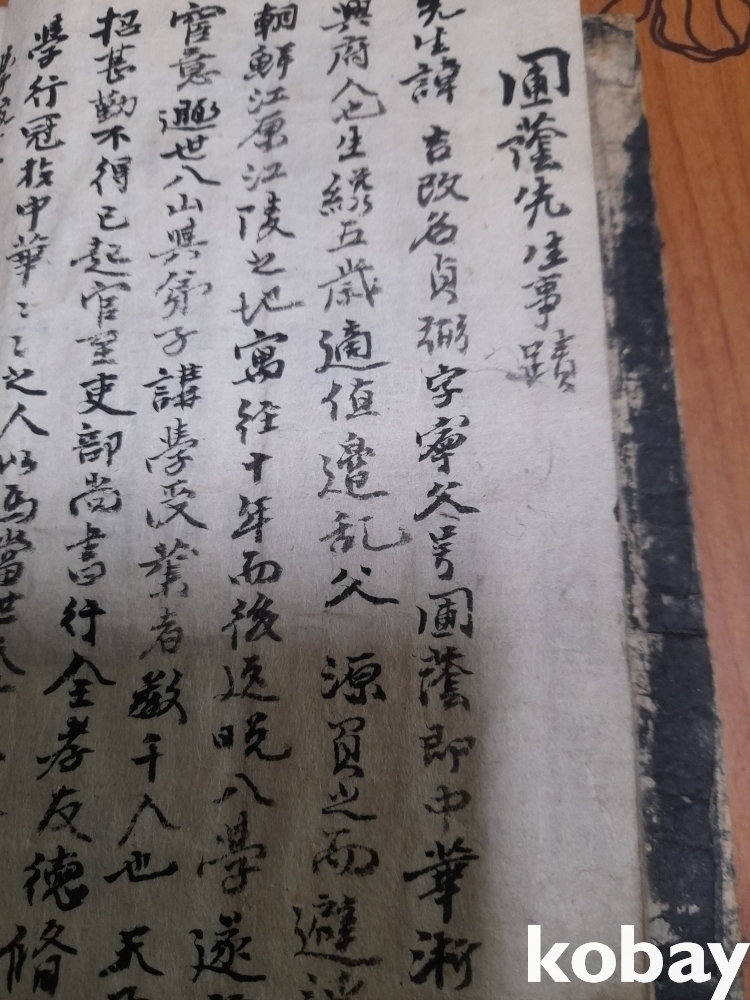 圃蔭先生事蹟
先生諱吉改名貞弼字寧父号圃蔭即中華浙
興府人也生纔五歲適值邊乱父源負之而避
朝鮮江原江陵之地寓在十年而後返晚入學遂
意遯世入山與弟子講學受業者數千人也天
招甚勤不得已起官至吏部尚書行全孝友德脩
學行冠於中華〻〻之人以為當世
kobay